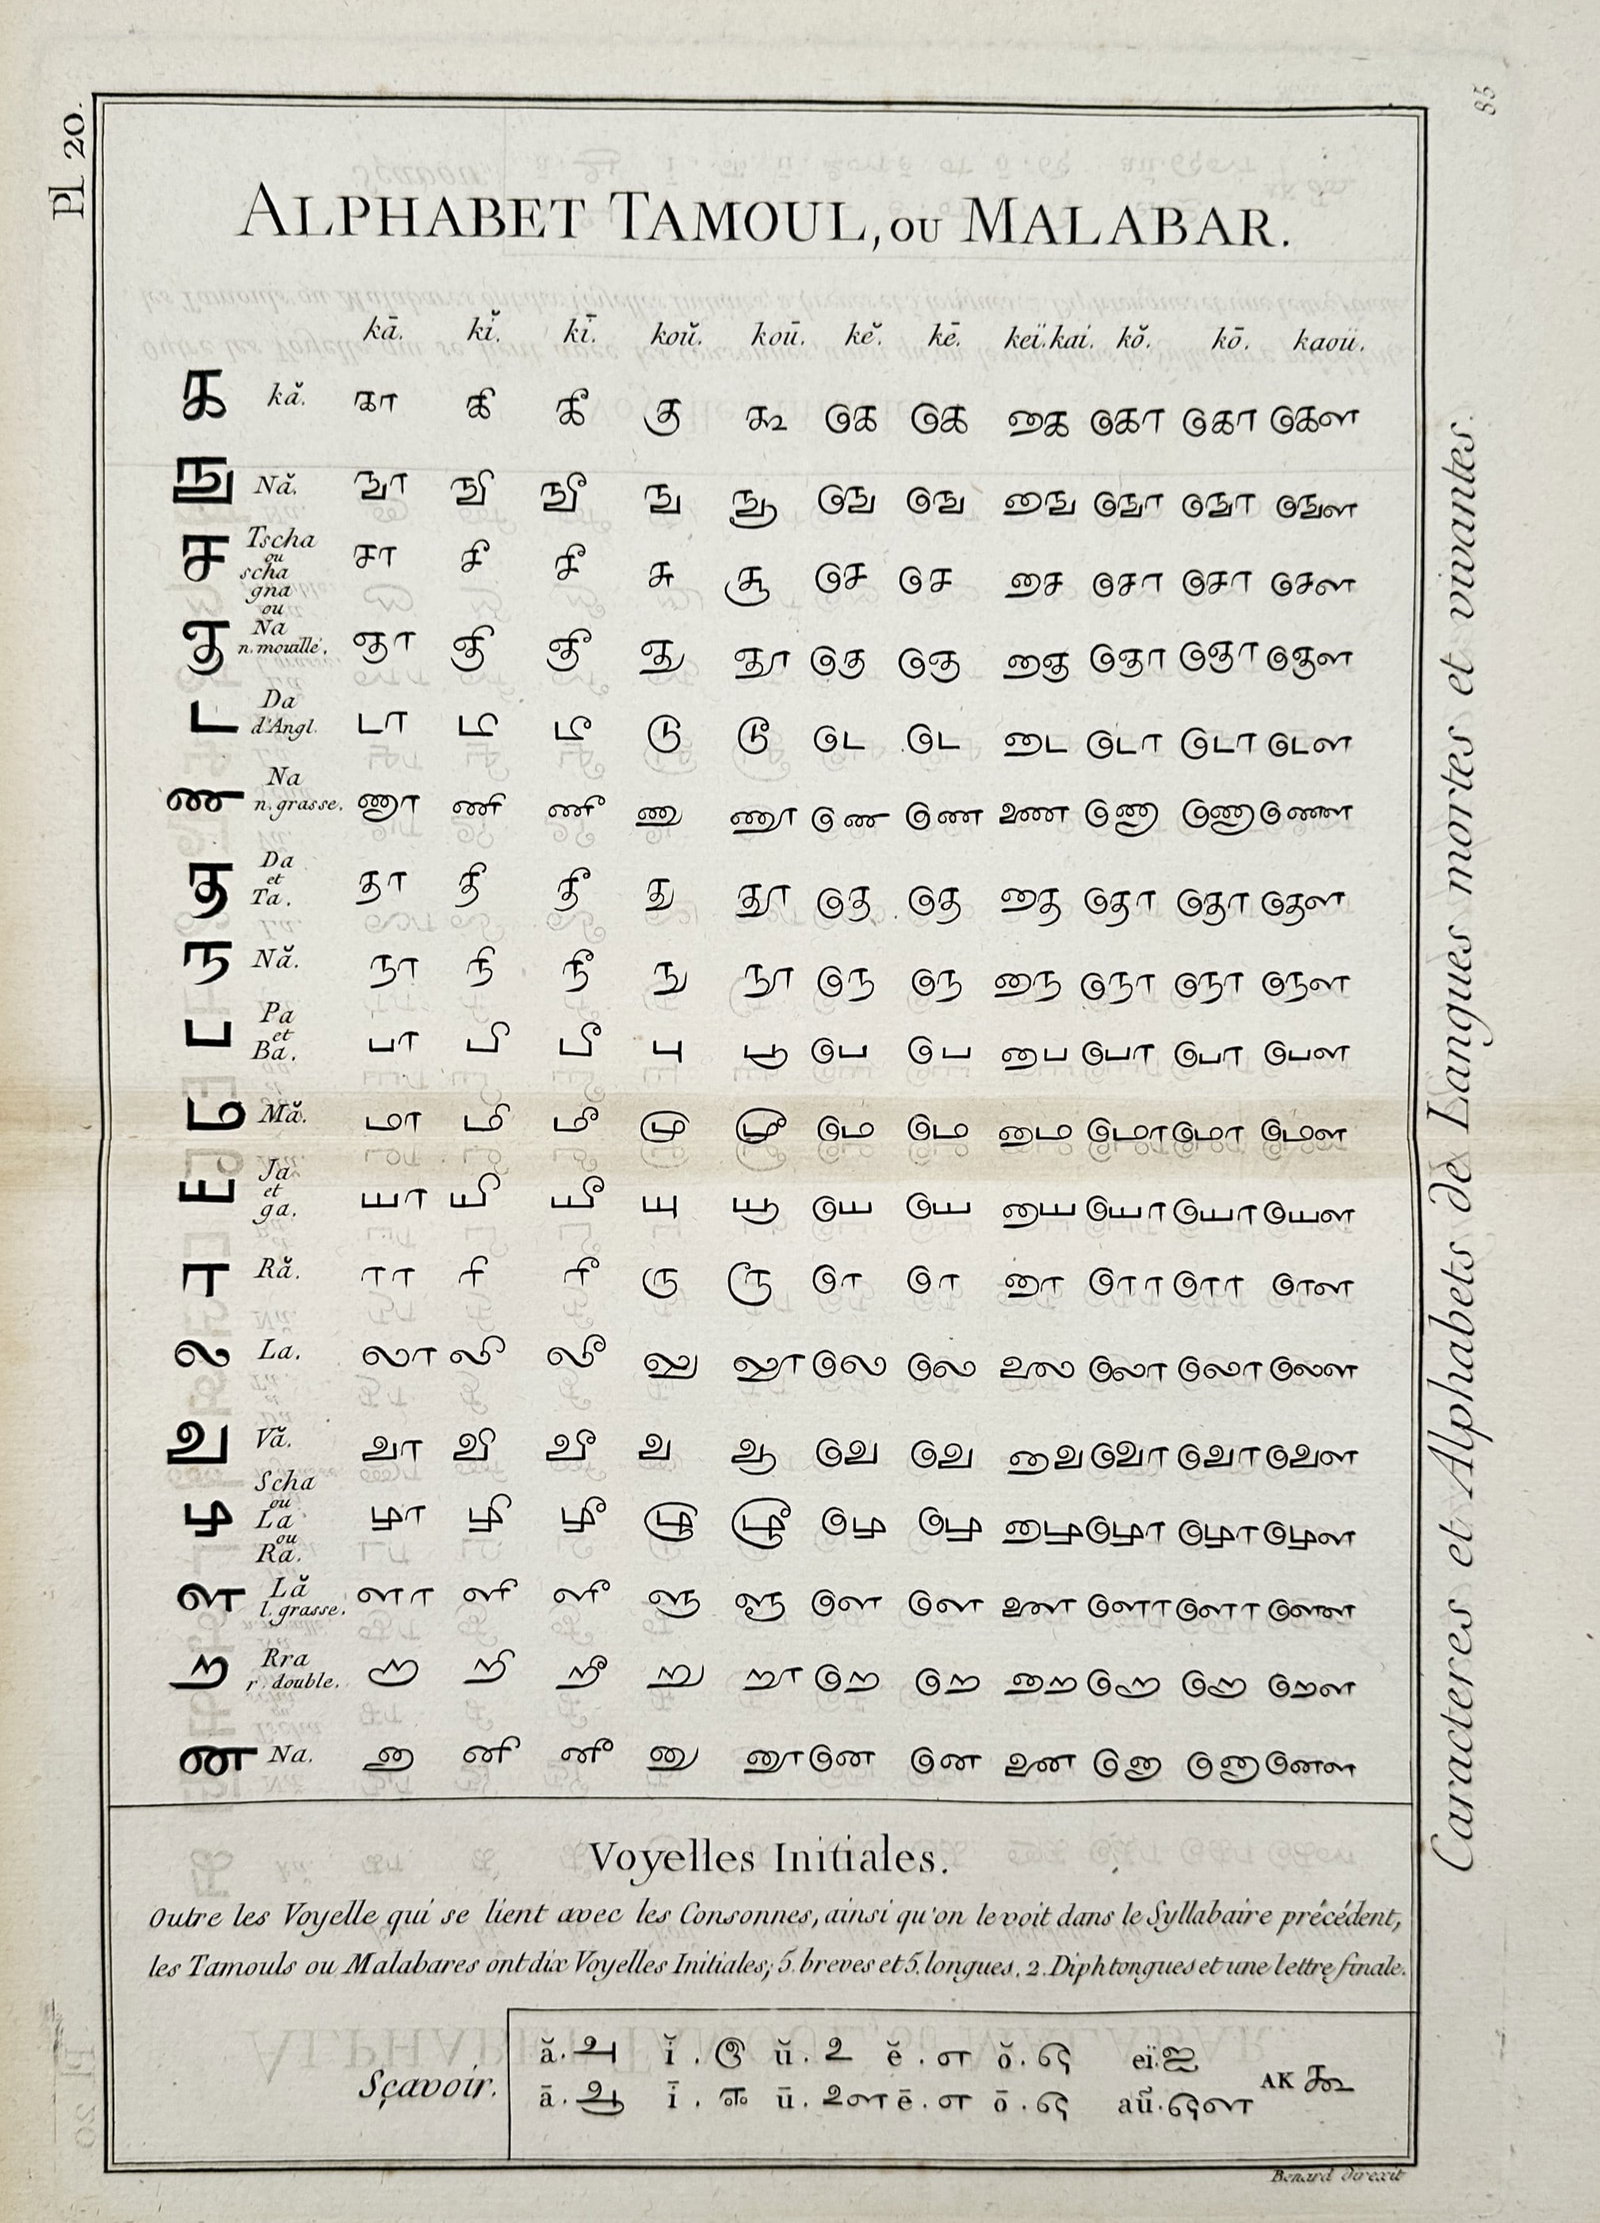 Pl. 20.
85
ALPHABET TAMOUL, OU MALABAR.
kā. kĭ. kī. koŭ. koū. kĕ. kē. keï. kai. kŏ. kō. kaoü.
க kă. கா கி கீ கு கூ கெ கெ கை கொ கொ கௌ
ங Nă. ஙா ஙி ஙீ ஙு ஙூ ஙெ ஙெ ஙை ஙொ ஙொ ஙௌ
ச Tscha ou scha சா சி சீ சு சூ செ செ சை சொ சொ சௌ
ஞ gna ou Na n. mouïllé. ஞா ஞி ஞீ ஞு ஞூ ஞெ ஞெ ஞை ஞொ ஞொ ஞௌ
ட Da d'Angl. டா டி டீ டு டூ டெ டெ டை டொ டொ டௌ
ண Na n. grasse. ணா ணி ணீ ணு ணூ ணெ ணெ ணை ணொ ணொ ணௌ
த Da et Ta. தா தி தீ து தூ தெ தெ தை தொ தொ தௌ
ந Nă. நா நி நீ நு நூ நெ நெ நை நொ நொ நௌ
ப Pa et Ba. பா பி பீ பு பூ பெ பெ பை பொ பொ பௌ
ம Mă. மா மி மீ மு மூ மெ மெ மை மொ மொ மௌ
ய Ja et ga. யா யி யீ யு யூ யெ யெ யை யொ யொ யௌ
ர Ră. ரா ரி ரீ ரு ரூ ரெ ரெ ரை ரொ ரொ ரௌ
ல La. லா லி லீ லு லூ லெ லெ லை லொ லொ லௌ
வ Vă. வா வி வீ வு வூ வெ வெ வை வொ வொ வௌ
ழ Scha ou La ou Ra. ழா ழி ழீ ழு ழூ ழெ ழெ ழை ழொ ழொ ழௌ
ள Lă l. grasse. ளா ளி ளீ ளு ளூ ளெ ளெ ளை ளொ ளொ ளௌ
ற Rra r. double. றா றி றீ று றூ றெ றெ றை றொ றொ றௌ
ன Na. னா னி னீ னு னூ னெ னெ னை னொ னொ னௌ
Voyelles Initiales.
Outre les Voyelle qui se lient avec les Consonnes, ainsi qu'on le voit dans le Syllabaire précédent,
les Tamouls ou Malabares ont dix Voyelles Initiales; 5. breves et 5. longues. 2. Diphtongues et une lettre finale.
Sçavoir.
ă. அ ĭ. இ ŭ. உ ĕ. எ ŏ. ஒ eï. ஐ
ā. ஆ ī. ஈ ū. ஊ ē. எ ō. ஒ aŭ. ஔ
AK ஃ
Benard direxit
Caracteres et Alphabets de Langues mortes et vivantes.